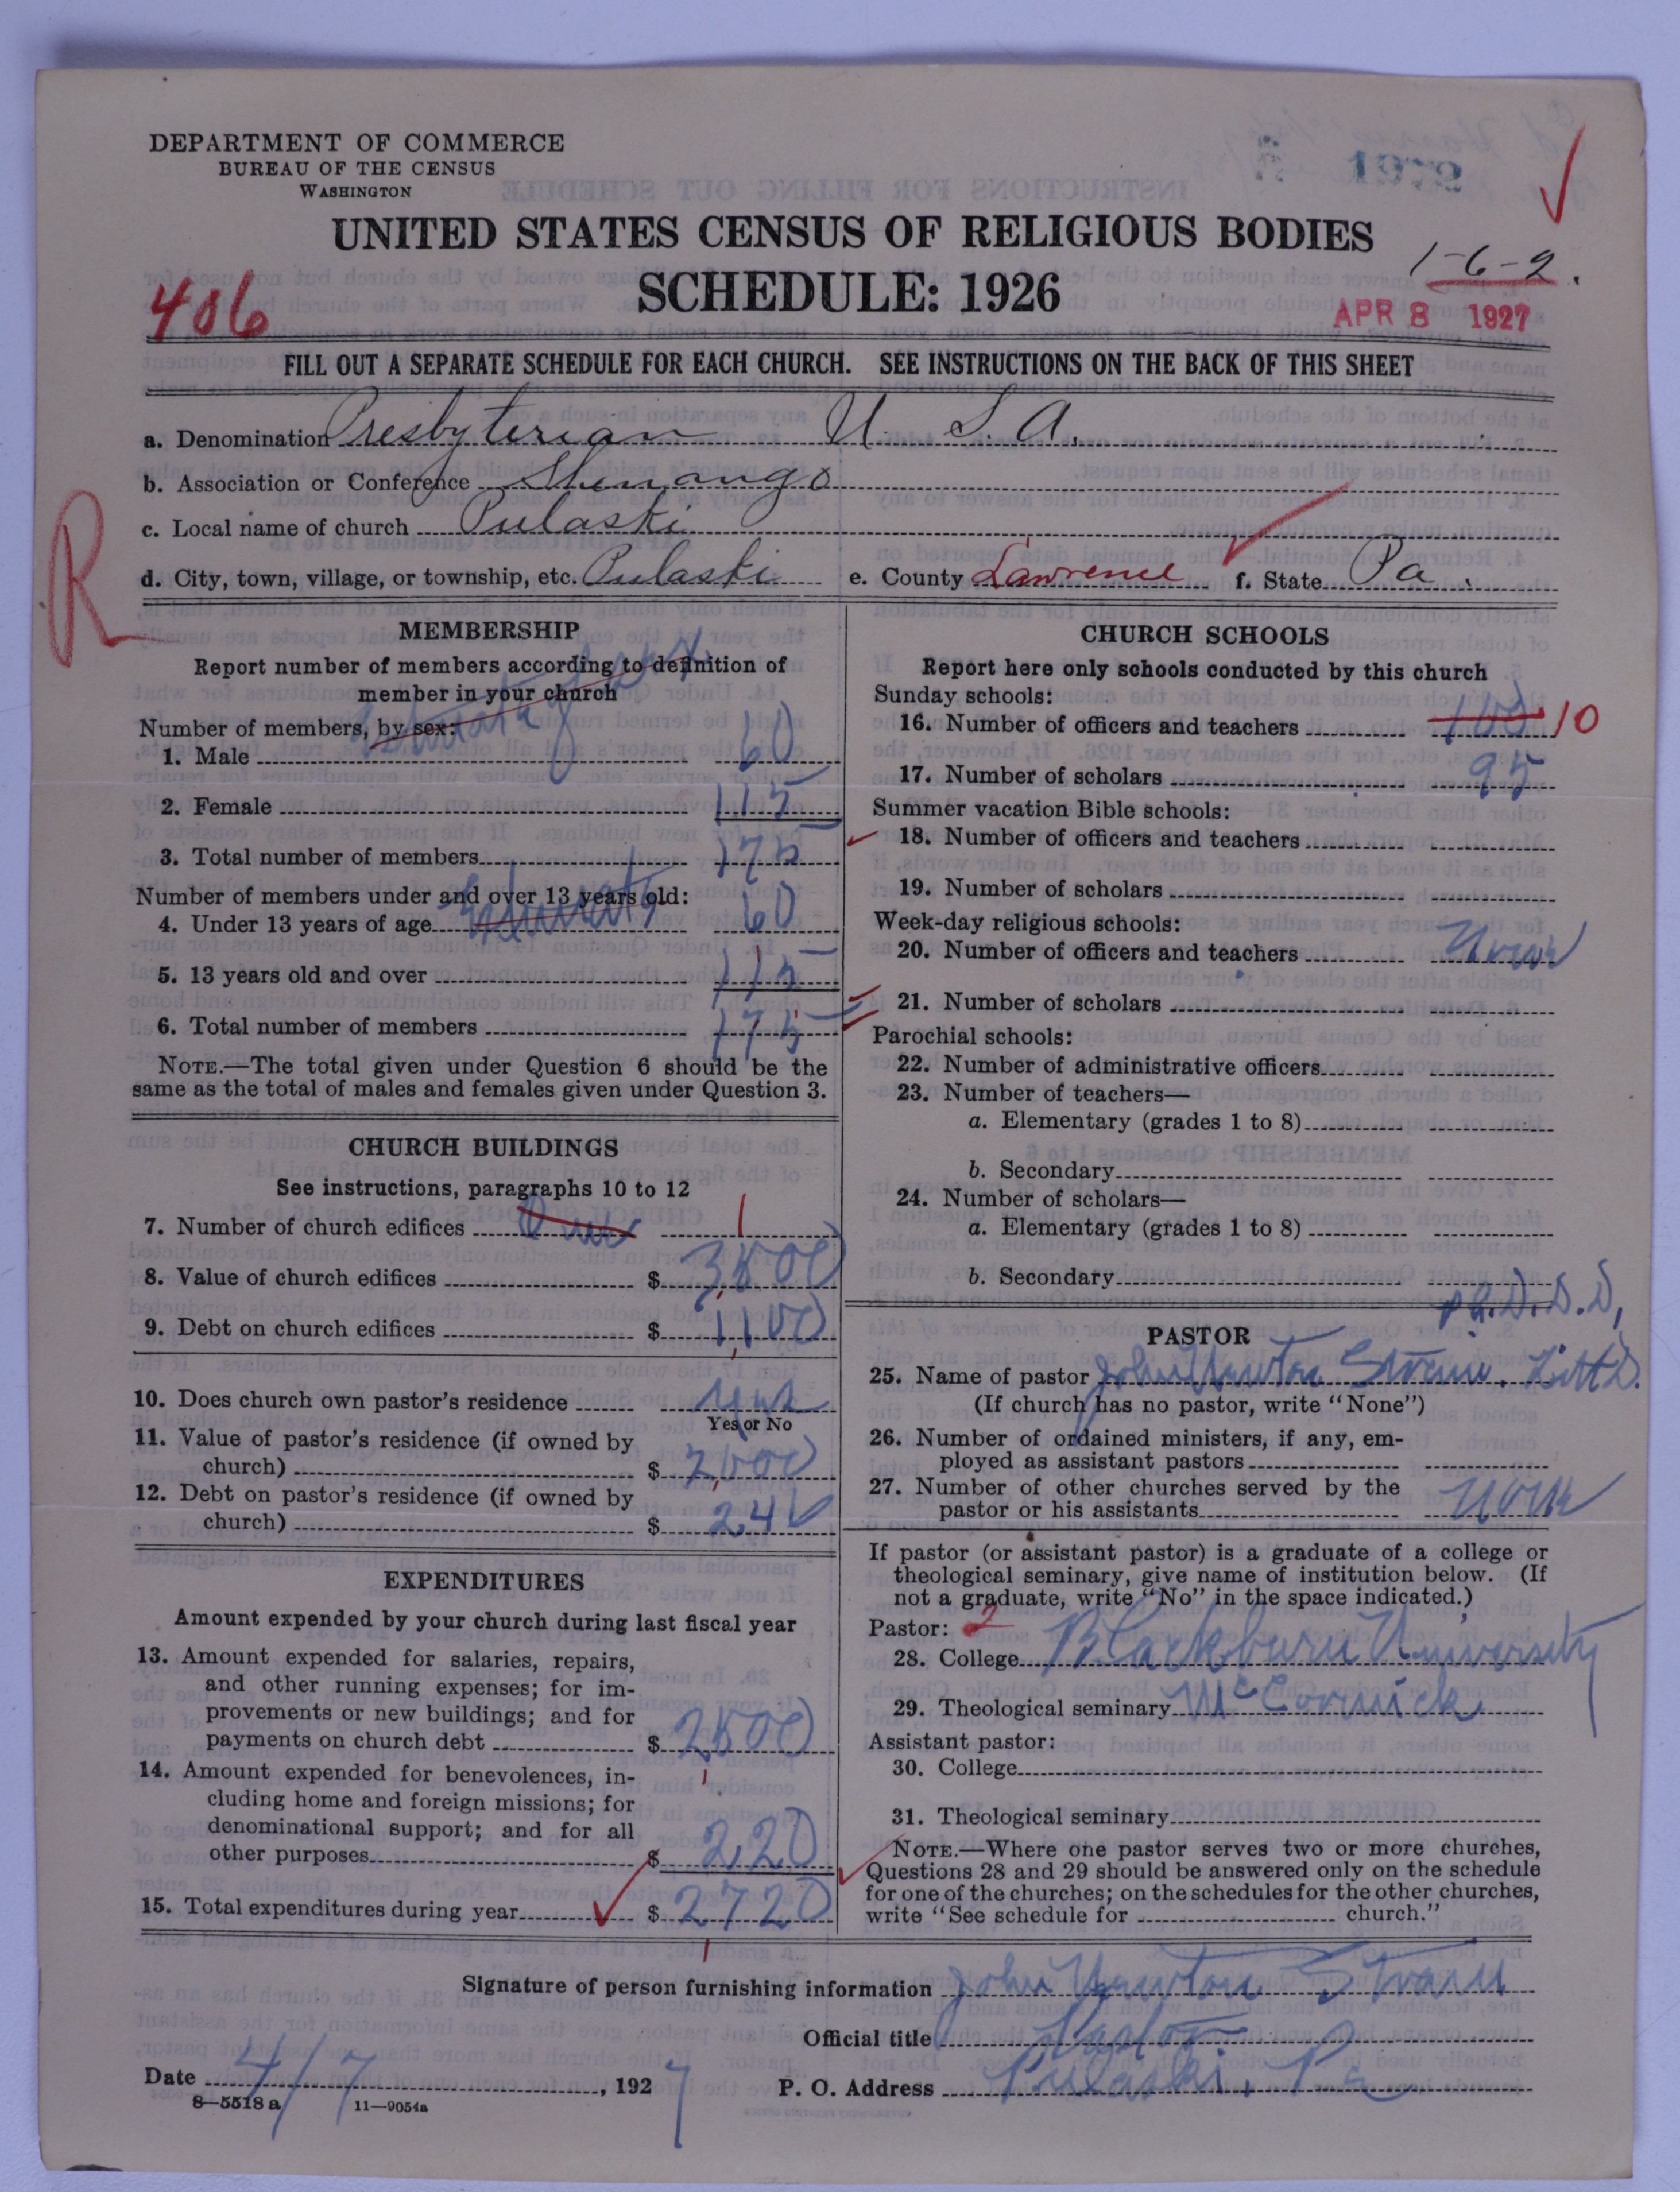 DEPARTMENT OF COMMERCE
BUREAU OF THE CENSUS
WASHINGTON
UNITED STATES CENSUS OF RELIGIOUS BODIES
1-6-2.
SCHEDULE: 1926
406
APR 8 1927
FILL OUT A SEPARATE SCHEDULE FOR EACH CHURCH. SEE INSTRUCTIONS ON THE BACK OF THIS SHEET
a. Denomination Presbyterian U. S. A.
b. Association or Conference Shenango
c. Local name of church Pulaski
R
d. City, town, village, or township, etc. Pulaski e. County Lawrence f. State Pa.
MEMBERSHIP
Report number of members according to definition of
member in your church
Number of members, by sex:
1. Male 60
2. Female 115
3. Total number of members 175
Number of members under and over 13 years old:
4. Under 13 years of age 60
5. 13 years old and over 115
6. Total number of members 175
NOTE.—The total given under Question 6 should be the
same as the total of males and females given under Question 3.
CHURCH BUILDINGS
See instructions, paragraphs 10 to 12
7. Number of church edifices One 1
8. Value of church edifices $
9. Debt on church edifices $ 1,100
10. Does church own pastor's residence Yes
Yes or No
11. Value of pastor's residence (if owned by
church) $
12. Debt on pastor's residence (if owned by
church) $
EXPENDITURES
Amount expended by your church during last fiscal year
13. Amount expended for salaries, repairs,
and other running expenses; for im-
provements or new buildings; and for
payments on church debt $ 2500
14. Amount expended for benevolences, in-
cluding home and foreign missions; for
denominational support; and for all
other purposes $ 220
15. Total expenditures during year $ 2720
CHURCH SCHOOLS
Report here only schools conducted by this church
Sunday schools:
16. Number of officers and teachers 10
17. Number of scholars 95
Summer vacation Bible schools:
18. Number of officers and teachers
19. Number of scholars
Week-day religious schools:
20. Number of officers and teachers None
21. Number of scholars
Parochial schools:
22. Number of administrative officers
23. Number of teachers—
a. Elementary (grades 1 to 8)
b. Secondary
24. Number of scholars—
a. Elementary (grades 1 to 8)
b. Secondary
Ph.D.D.D,
PASTOR
25. Name of pastor John Newton Litt D.
(If church has no pastor, write "None")
26. Number of ordained ministers, if any, em-
ployed as assistant pastors
27. Number of other churches served by the
pastor or his assistants None
If pastor (or assistant pastor) is a graduate of a college or
theological seminary, give name of institution below. (If
not a graduate, write "No" in the space indicated.)
Pastor: 2
28. College Blackburn University
29. Theological seminary McCormick
Assistant pastor:
30. College
31. Theological seminary
NOTE.—Where one pastor serves two or more churches,
Questions 28 and 29 should be answered only on the schedule
for one of the churches; on the schedules for the other churches,
write "See schedule for church."
Signature of person furnishing information John Newton
Official title Pastor
Date 4/7, 1927 P. O. Address Pulaski, Pa
8-5518 a 11-9054a